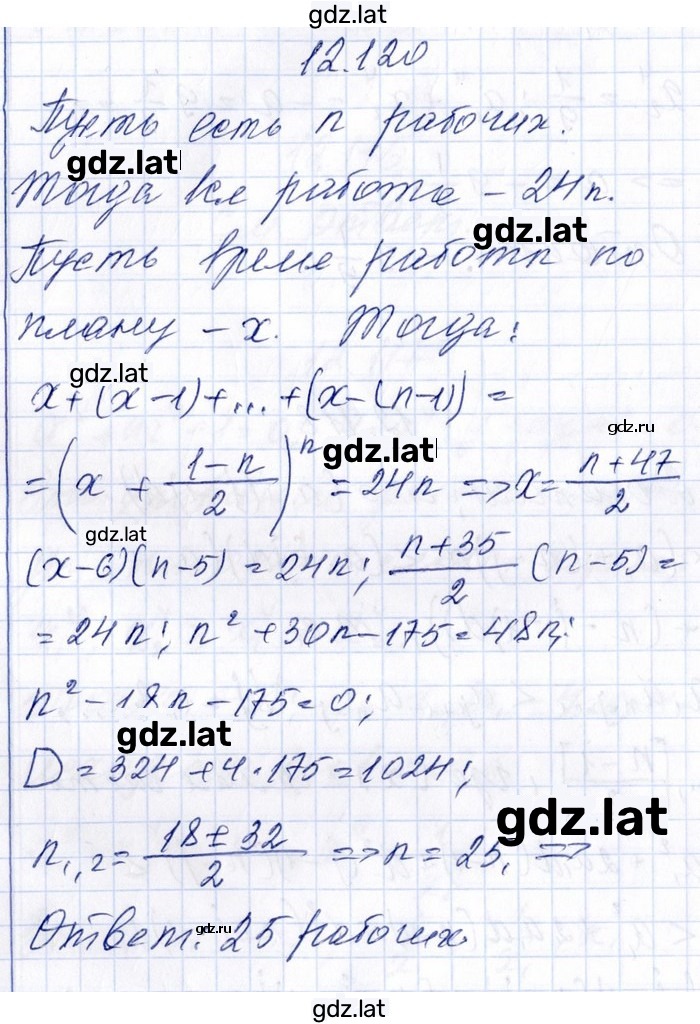 gdz.lat
12.120
Пусть есть n рабочих.
gdz.lat
Тогда вся работа – 24n.
gdz.lat
Пусть время работы по
плану – x. Тогда:
gdz.lat
x+(x-1)+...+(x-(n-1)) =
gdz.ru
= (x + \frac{1-n}{2})^n = 24n => x = \frac{n+47}{2}
gdz.lat
gdz.lat
(x-6)(n-5) = 24n; \frac{n+35}{2} (n-5) =
= 24n; n² + 30n - 175 = 48n;
n² - 18n - 175 = 0;
gdz.lat
D = 324 + 4·175 = 1024;
gdz.lat
n₁,₂ = \frac{18±32}{2} => n = 25, =>
Ответ: 25 рабочих
gdz.ru
gdz.lat